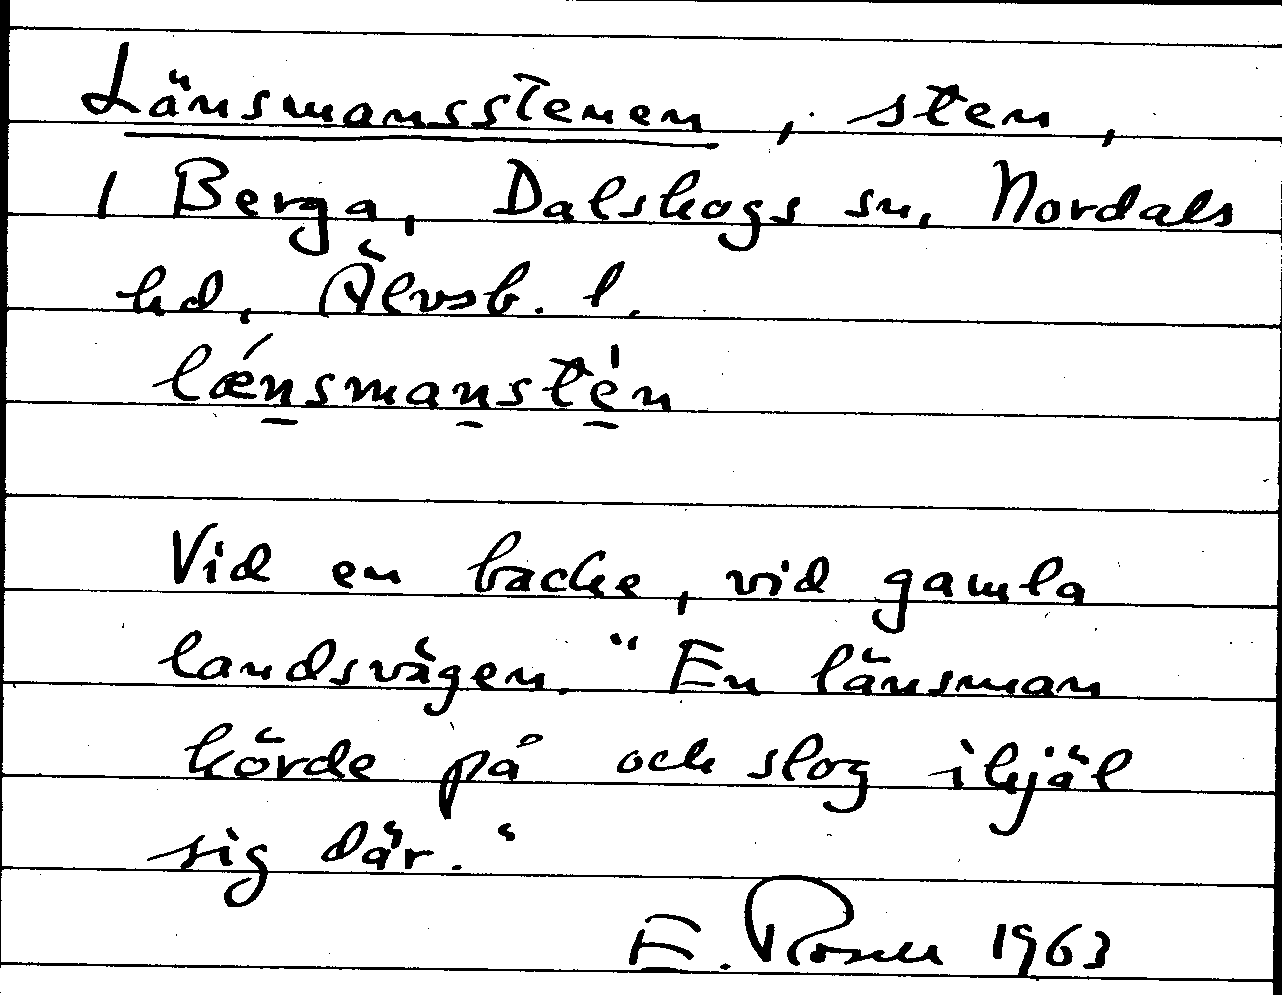 Länsmansstenen, sten,
1 Berga, Dalskogs sn, Nordals
hd, Älvsb. l.
lǽn̠sman̠stė̠n
Vid en backe, vid gamla
landsvägen. "En länsman
körde på och slog ihjäl
sig där."
E. Rosell 1963